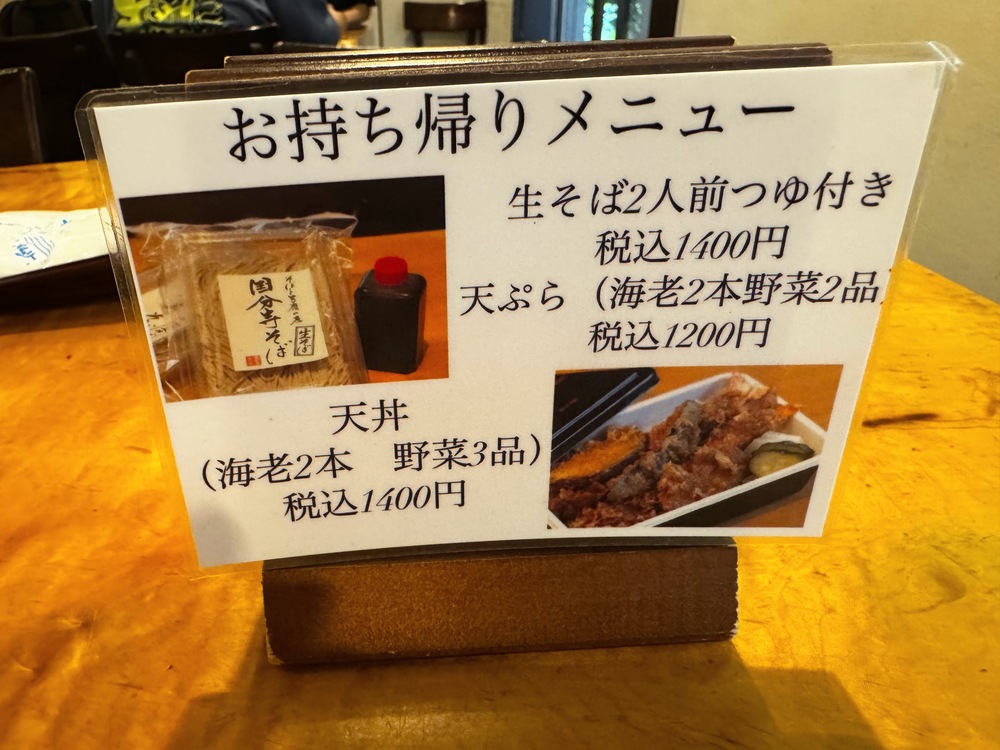 お持ち帰りメニュー
生そば2人前つゆ付き
税込1400円
天ぷら（海老2本野菜2品
税込1200円
国分寺そば
生そば
天丼
（海老2本　野菜3品）
税込1400円